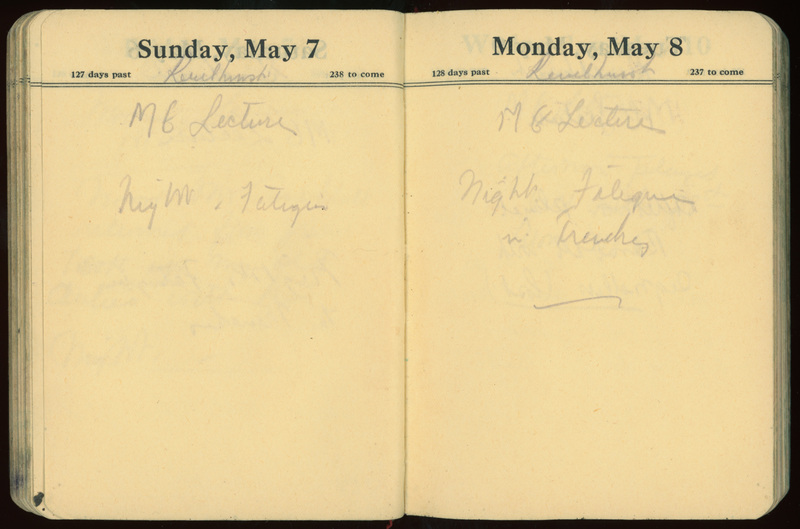 Sunday, May 7
127 days past Kemelhurst 238 to come
M G Lecture
Night Fatigue
Monday, May 8
128 days past Kemelhurst 237 to come
M G Lecture
Night Fatigue
in Trenches